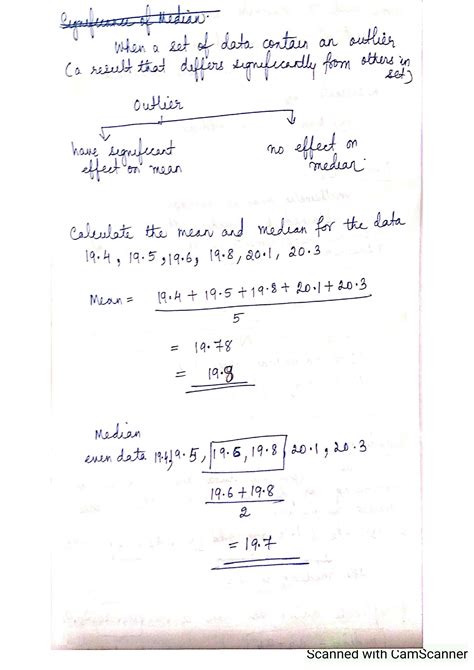 Significance of Median.
When a set of data contain an outlier
(a result that differs significantly from others in
set)
Outlier
have significant
effect on mean
no effect on
median.
Calculate the mean and median for the data
19.4, 19.5, 19.6, 19.8, 20.1, 20.3
Mean = 19.4 + 19.5 + 19.8 + 20.1 + 20.3
5
= 19.78
= 19.8
Median
even data 19.4, 19.5, 19.6, 19.8, 20.1, 20.3
19.6 + 19.8
2
= 19.7
Scanned with CamScanner